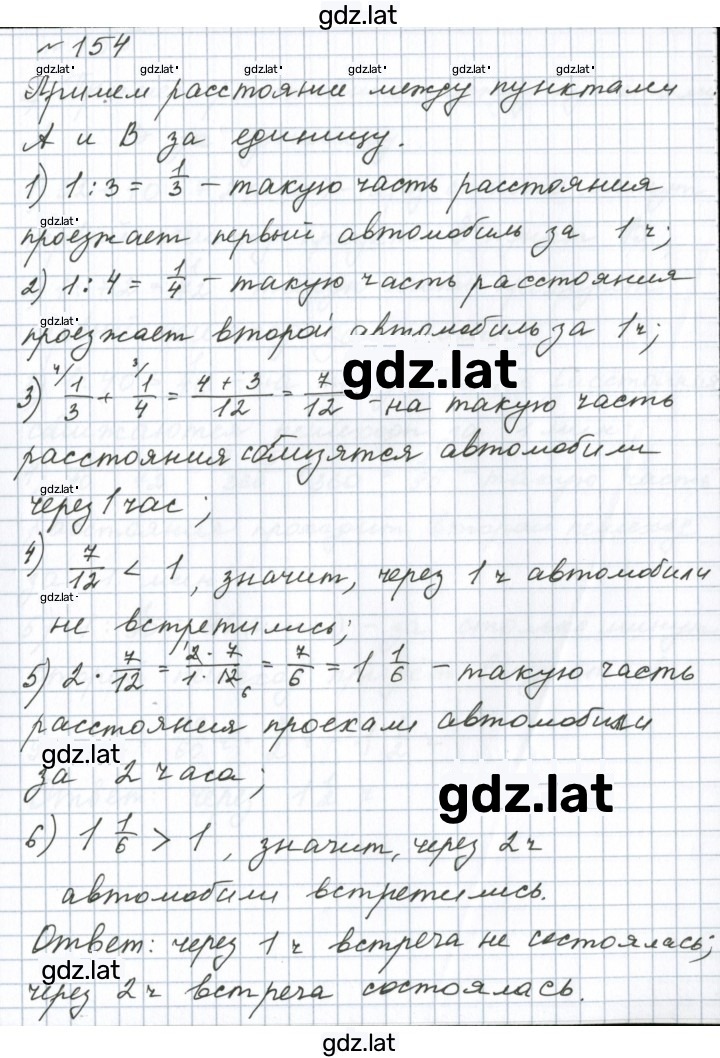 gdz.lat
№ 154
gdz.lat gdz.lat gdz.lat gdz.lat gdz.lat gdz.lat
Примем расстояние между пунктами
А и В за единицу.
1) 1 : 3 = 1/3 – такую часть расстояния
gdz.lat
проезжает первый автомобиль за 1 ч;
2) 1 : 4 = 1/4 – такую часть расстояния
gdz.lat
проезжает второй автомобиль за 1 ч;
gdz.lat
3) 4/ 1/3 + 3/ 1/4 = (4 + 3)/12 = 7/12 – на такую часть
расстояния сблизятся автомобили
gdz.lat
через 1 час ;
4) 7/12 < 1 , значит, через 1 ч автомобили
gdz.lat
не встретились;
5) 2 · 7/12 = (2 · 7)/(1 · 12) 1 6 = 7/6 = 1 1/6 – такую часть
расстояния проехали автомобили
gdz.lat
за 2 часа ;
gdz.lat
6) 1 1/6 > 1 , значит, через 2 ч
автомобили встретились.
Ответ: через 1 ч встреча не состоялась;
gdz.lat
через 2 ч встреча состоялась.
gdz.lat